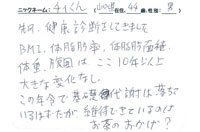 ニックネーム：チィくん（山口県在住，44歳，性別：男）
先日、健康診断をしてきました
BMI、体脂肪率、体脂肪面積、
体重、腹囲は ここ10年以上
大きな変化なし。
この年令で基礎代謝は落ちて
いるはずだが、維持できているのは
お茶のおかげ？